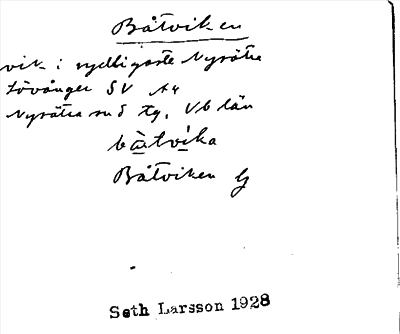 Båtviken
vik i sydligaste Nysätra
Lövånger SV A4
Nysätra sn S tg, Vb län
båtvika
Båtviken G
Seth Larsson 1928